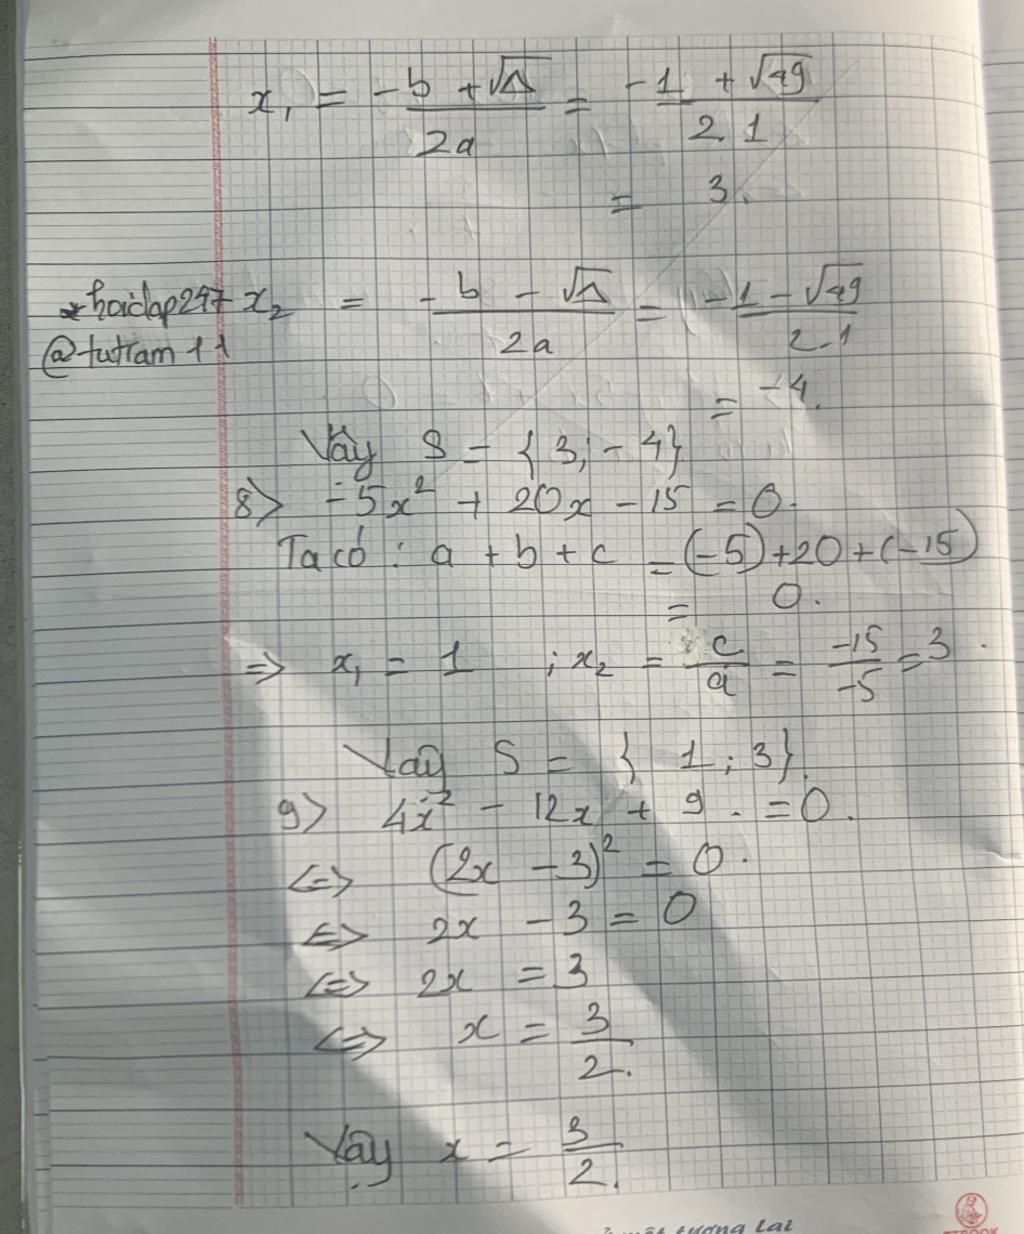 x₁ = (-b + √Δ)/(2a) = (-1 + √49)/(2.1)
= 3.
*hoidap247 x₂ = (-b - √Δ)/(2a) = (-1 - √49)/(2.1)
@tutram11
= -4.
Vậy S = {3; -4}
8> -5x² + 20x - 15 = 0.
Ta có : a + b + c = (-5) + 20 + (-15)
= 0.
=> x₁ = 1 ; x₂ = c/a = -15/-5 = 3.
Vậy S = {1; 3}.
9> 4x² - 12x + 9 = 0.
<=> (2x - 3)² = 0.
<=> 2x - 3 = 0
<=> 2x = 3
<=> x = 3/2.
Vậy x = 3/2.
tương lai